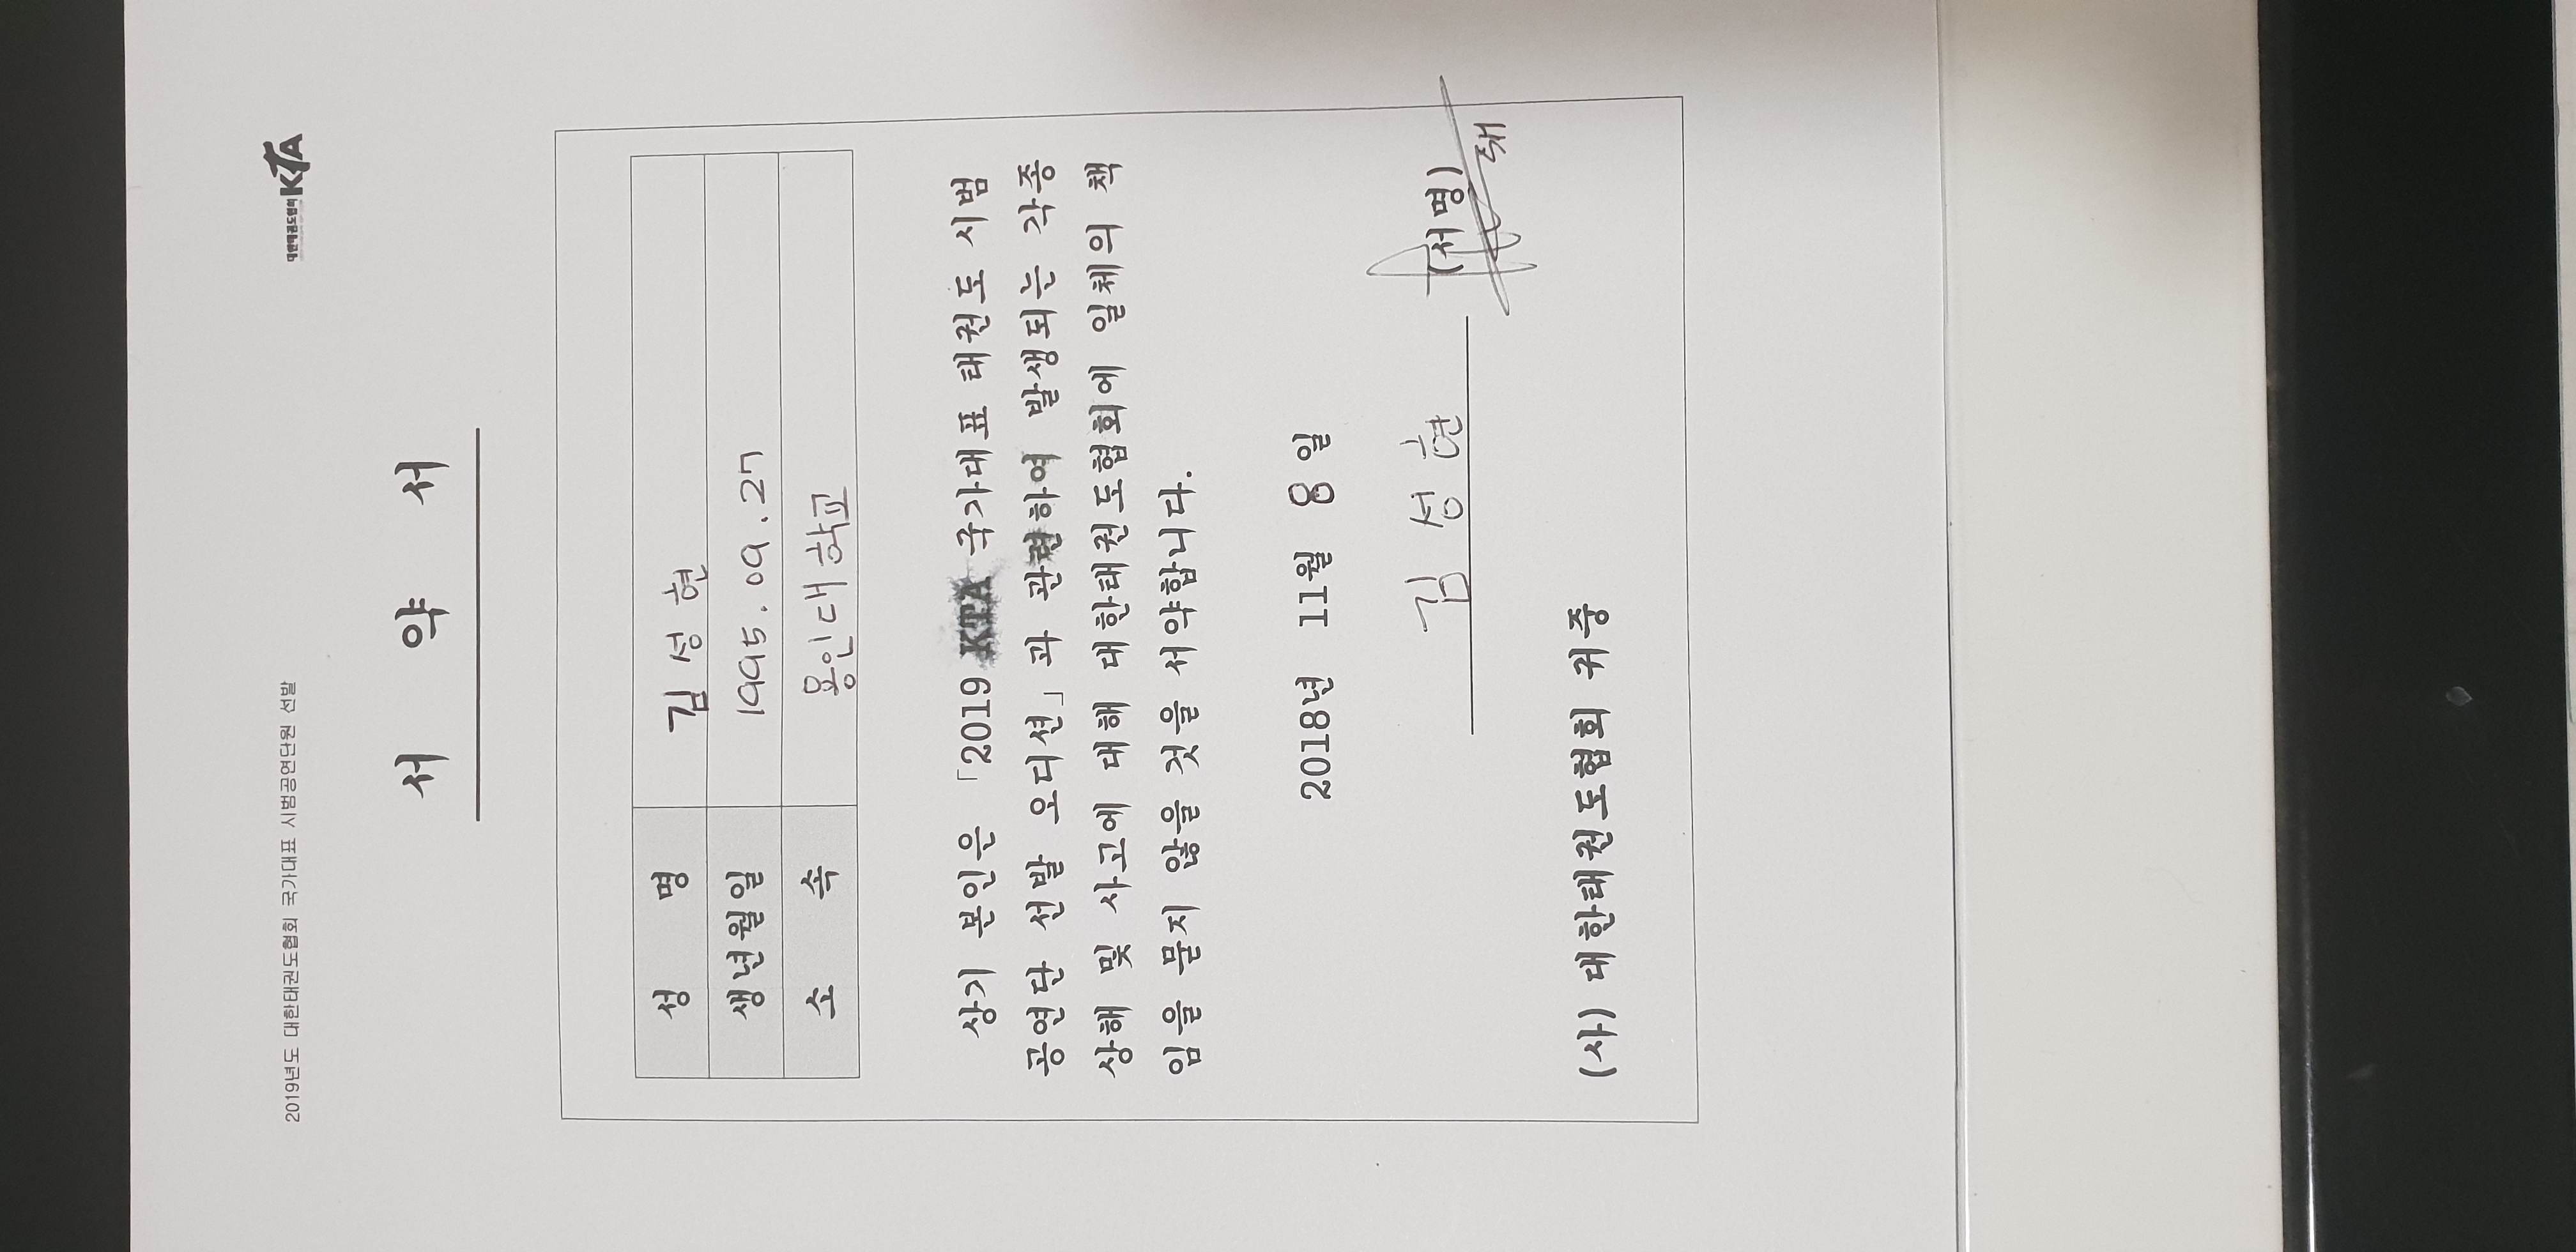 2019년도 대한태권도협회 국가대표 시범공연단원 선발
대한태권도협회 KTA
서 약 서
성 명 김성현
생년월일 1995.09.27
소 속 용인대학교
상기 본인은 「2019 KTA 국가대표 태권도 시범
공연단 선발 오디션」과 관련하여 발생되는 각종
상해 및 사고에 대해 대한태권도협회에 일체의 책
임을 묻지 않을 것을 서약합니다.
2018년 11월 8일
김 성 현 (서명)
(사) 대한태권도협회 귀중